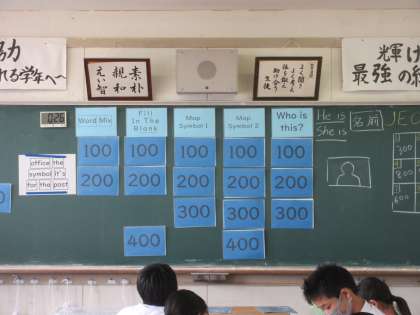 努力
れる学年へ〜
素朴
親和
えい智
よく聞く
よく考え
助け合う
生徒
輝け
最強の
0:26
Word Mix
Fill
In The
Blank
Map
Symbol 1
Map
Symbol 2
Who is
this?
He is
She is
名前
100
100
100
100
100
200
200
200
200
200
300
300
300
400
400
office the
symbol it's
for the post
300